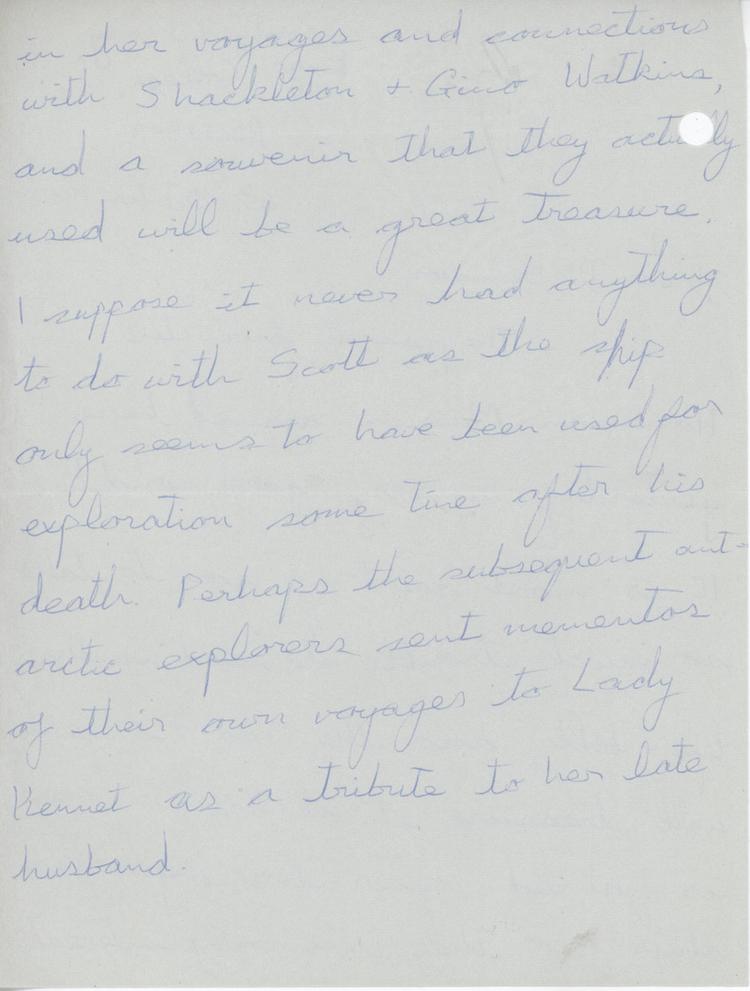 in her voyages and connections
with Shackleton + Gino Watkins,
and a souvenir that they actually
used will be a great treasure.
I suppose it never had anything
to do with Scott as the ship
only seems to have been used for
exploration some time after his
death. Perhaps the subsequent ant-
arctic explorers sent mementos
of their own voyages to Lady
Kennet as a tribute to her late
husband.